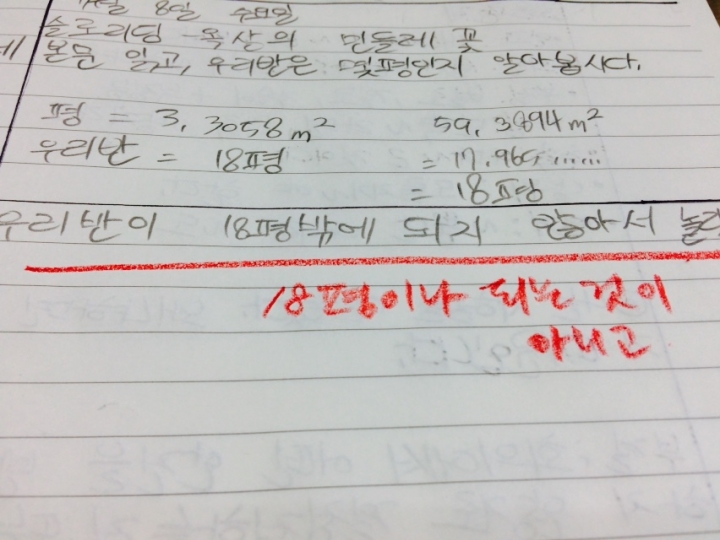 8일 수요일
슬로리딩 옥상의 민들레 꽃
본문 읽고, 우리반은 몇평인지 알아봅시다.
평 = 3.3058m² 59.3894m²
우리반 = 18평 = 17.965......
= 18평
우리반이 18평밖에 되지 않아서 놀랐
18평이나 되는 것이
아니고